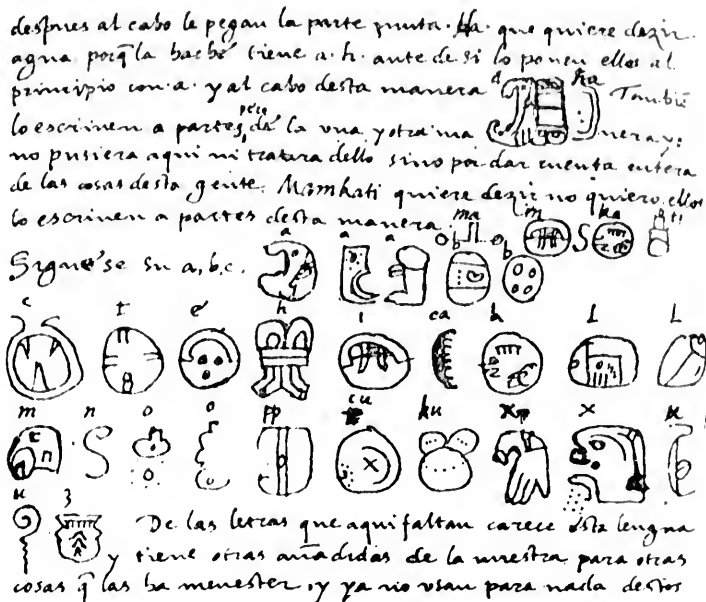 despues al cabo le pegan la parte junta. Ha. que quiere dezir
agua porq̄ la hache tiene a. h. ante de si lo ponen ellos al
principio con a. y al cabo desta manera a ha Tambiē
lo escriven a partes, pero de la una y otra ma nera y:
no pusiera aqui ni tratara dello sino por dar cuenta entera
de las cosas desta gente. Mamkati quiere dezir no quiero, ellos
lo escriven a partes desta manera. ma i n ka ti
Siguese su a, b, c. a a a b b
c t e h i ca k l l
m n o o pp cu ku x x u
u z De las letras que aqui faltan carece esta lengua
y tiene otras añadidas de la nuestra para otras
cosas q̄ las ha menester, y ya no usan para nada destos